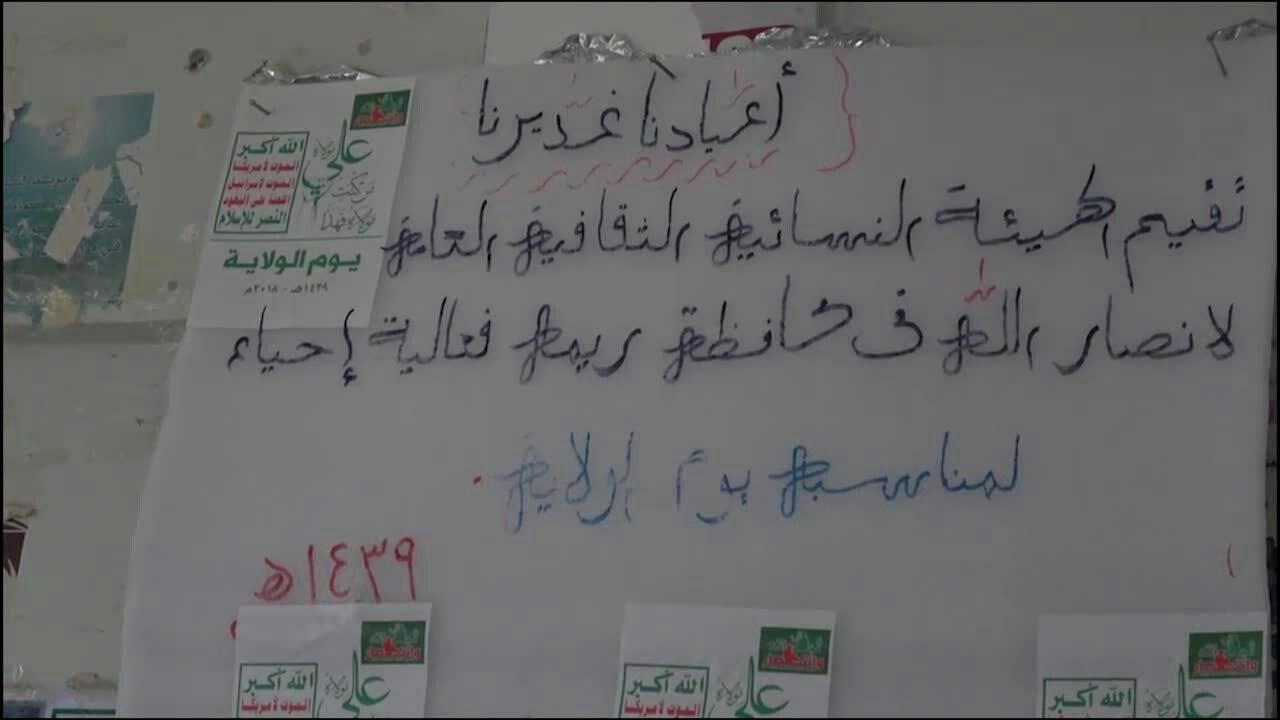 أعيادنا غديرنا
تقيم الهيئة النسائية الثقافية العامة
لانصار الله في محافظة ريمة فعالية إحياء
لمناسبة يوم الولاية
١٤٣٩هـ
الله أكبر
الموت لأمريكا
الموت لإسرائيل
اللعنة على اليهود
النصر للإسلام
علي
يوم الولاية
١٤٣٩هـ - ٢٠١٨م
الله أكبر
الموت لأمريكا
علي
الله أكبر
الموت لأمريكا
علي
الله أكبر